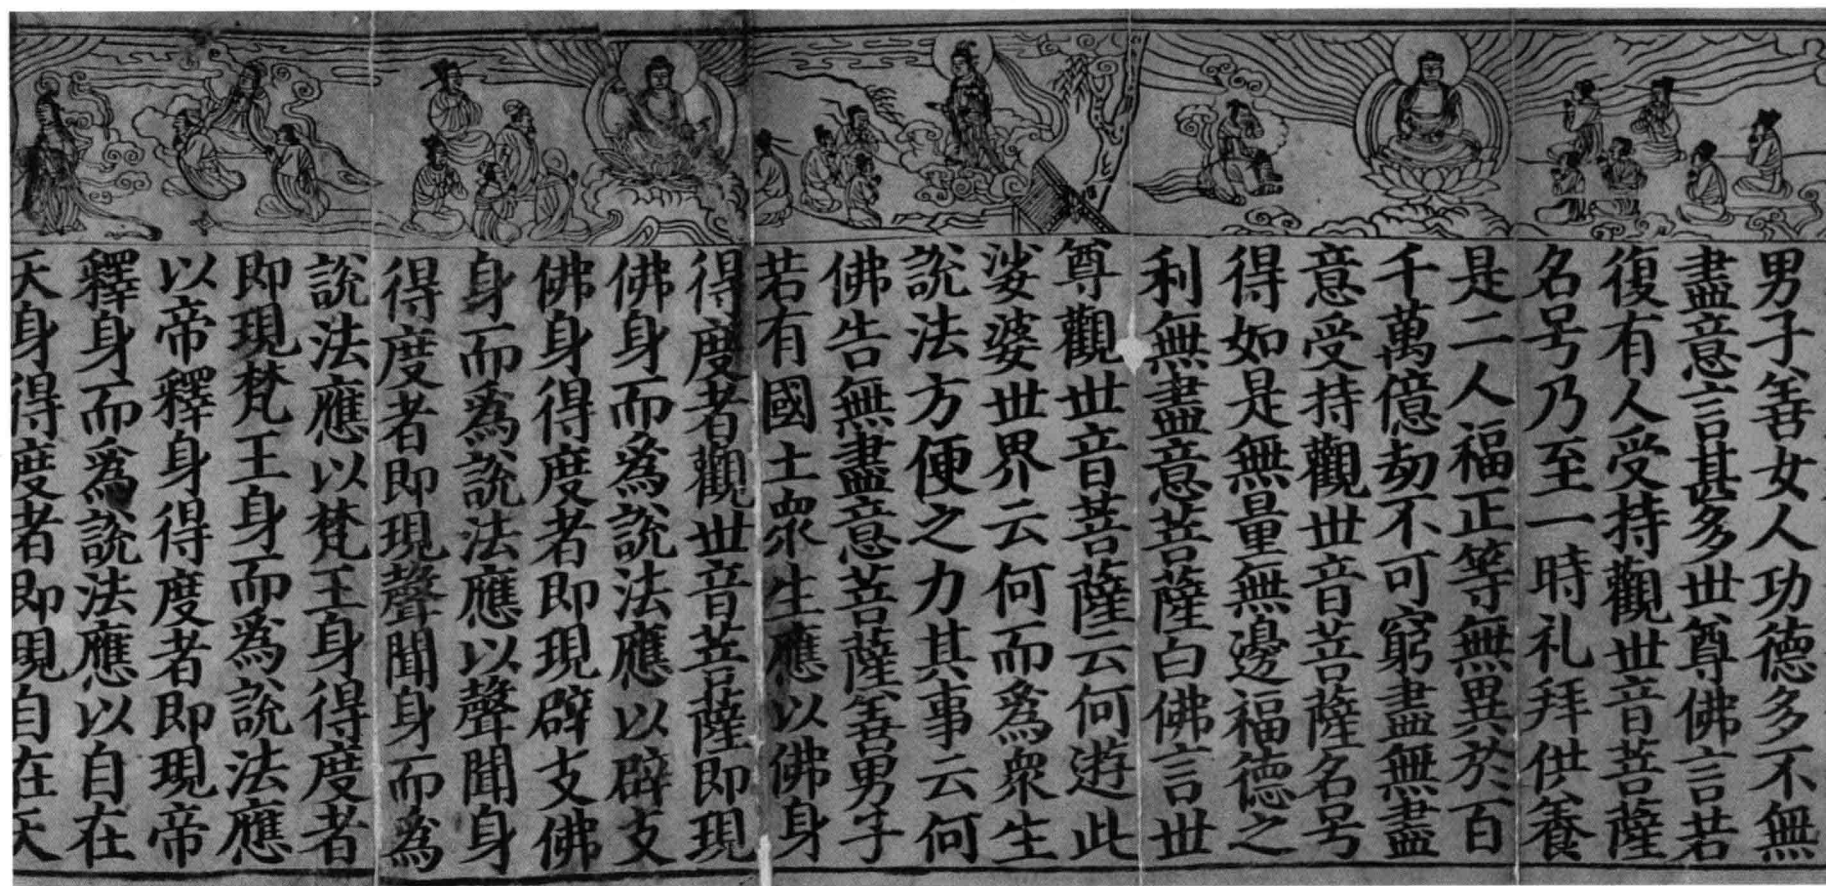 男子善女人功德多不無
盡意言甚多世尊佛言若
復有人受持觀世音菩薩
名号乃至一時礼拜供養
是二人福正等無異於百
千萬億劫不可窮盡無盡
意受持觀世音菩薩名号
得如是無量無邊福德之
利無盡意菩薩白佛言世
尊觀世音菩薩云何遊此
娑婆世界云何而爲衆生
説法方便之力其事云何
佛告無盡意菩薩善男子
若有國土衆生應以佛身
得度者觀世音菩薩即現
佛身而爲説法應以辟支
佛身得度者即現辟支佛
身而爲説法應以聲聞身
得度者即現聲聞身而爲
説法應以梵王身得度者
即現梵王身而爲説法應
以帝釋身得度者即現帝
釋身而爲説法應以自在
天身得度者即現自在天